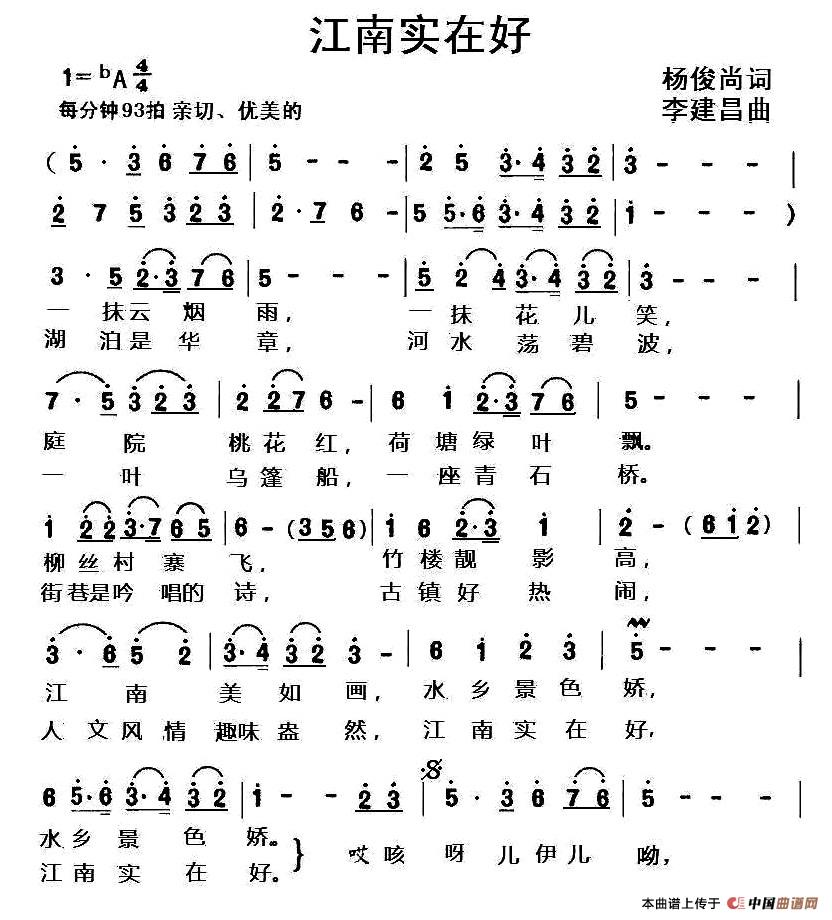 江南实在好
1=ᵇA 4/4
杨俊尚词
每分钟93拍 亲切、优美的
李建昌曲
(5 · 3 6 7 6 | 5 - - - | 2 5 3·4 3 2 | 3 - - - |
2 7 5 3 2 3 | 2 · 7 6 - | 5 5·6 3·4 3 2 | 1 - - - )
3 · 5 2·3 7 6 | 5 - - - | 5 2 4 3·4 3 2 | 3 - - - |
一 抹云 烟 雨, 一 抹 花 儿 笑,
湖 泊是 华 章, 河 水 荡 碧 波,
7 · 5 3 2 3 | 2 2 7 6 - | 6 1 2·3 7 6 | 5 - - - |
庭 院 桃 花 红, 荷 塘 绿 叶 飘。
一 叶 乌 篷 船, 一 座 青 石 桥。
1 2 2 3·7 6 5 | 6 - (3 5 6) | 1 6 2·3 1 | 2 - (6 1 2) |
柳 丝 村 寨 飞, 竹 楼 靓 影 高,
街巷是吟 唱的 诗, 古 镇 好 热 闹,
3 · 6 5 2 | 3·4 3 2 3 - | 6 1 2 3 | 5 - - - |
江 南 美 如 画, 水 乡 景 色 娇,
人 文 风 情 趣味 盎 然, 江 南 实 在 好,
6 5·6 3·4 3 2 | 1 - - 2 3 | 5 · 3 6 7 6 | 5 - - - |
水 乡 景 色 娇。
哎 咳 呀 儿 伊儿 呦,
江 南 实 在 好。
本曲谱上传于 中国曲谱网